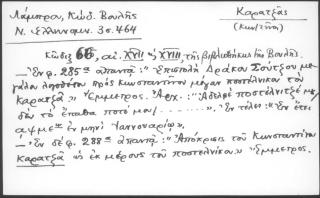 Λάμπρου, Κώδ. Βουλῆς
Ν. Ἑλληνομν. 3 σ. 464
Καρατζᾶς
(Κων/τῖνος)
Κῶδιξ 66, αἰ. XVII ἢ XVIII, τῆς βιβλιοθήκης τῆς Βουλῆς.
— Ἐν φ. 285α ἀπαντᾷ: "Ἐπιστολὴ Δράκου Σούτζου με
γάλου πρὸς Κωνσταντῖνον μέγαν ποστέλνικον τὸν
Καρατζᾶ" Ἔμμετρος. Ἀρχ.: "Ἀδελφὲ ποστελνιτζέ μου,
δὲν τὸ ἔπαθα ποτέ μου/ . . . . . . . ". Ἐν τέλει: "Ἐν ἔτει
αψμε ἐν μηνὶ Ἰαννουαρίῳ".
— Ἐν δὲ φ. 288α ἀπαντᾷ: "Ἀπόκρισις τοῦ Κωνσταντίνου
Καρατζᾶ ὡς ἐκ μέρους τοῦ ποστελνίκου" Ἔμμετρος.